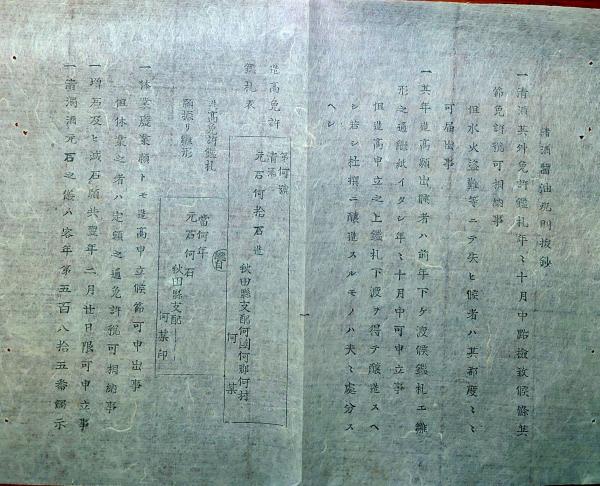 諸酒醤油規則抜鈔
一清酒其外免許鑑札年々十月中踏檢致候條其
節免許税可相納事
但水火盗難等ニテ失ヒ候者ハ其都度々々
可届出事
一其年造高願出候者ハ前年下ケ渡候鑑札エ雛
形之通繼紙イタシ年々十月中可申立事
但造高申立之上鑑札下渡ヲ得テ醸造スヘ
シ若シ杜撰ニ醸造スルモノハ夫々處分ス
ヘシ
造高免許
鑑札表
第何號
清酒
元石何拾石造
秋田縣支配何國何郡何村
何某
造高免許鑑札
願振リ雛形
當何年
元石何石
秋田縣支配
何某印
一休業廢業願トモ造高申立候節可申出事
但休業之者ハ定額之通免許税可相納事
一増石及ヒ減石願共翌年二月廿日限可申立事
一清濁酒元石之儀ハ客年第五百八拾五番觸示